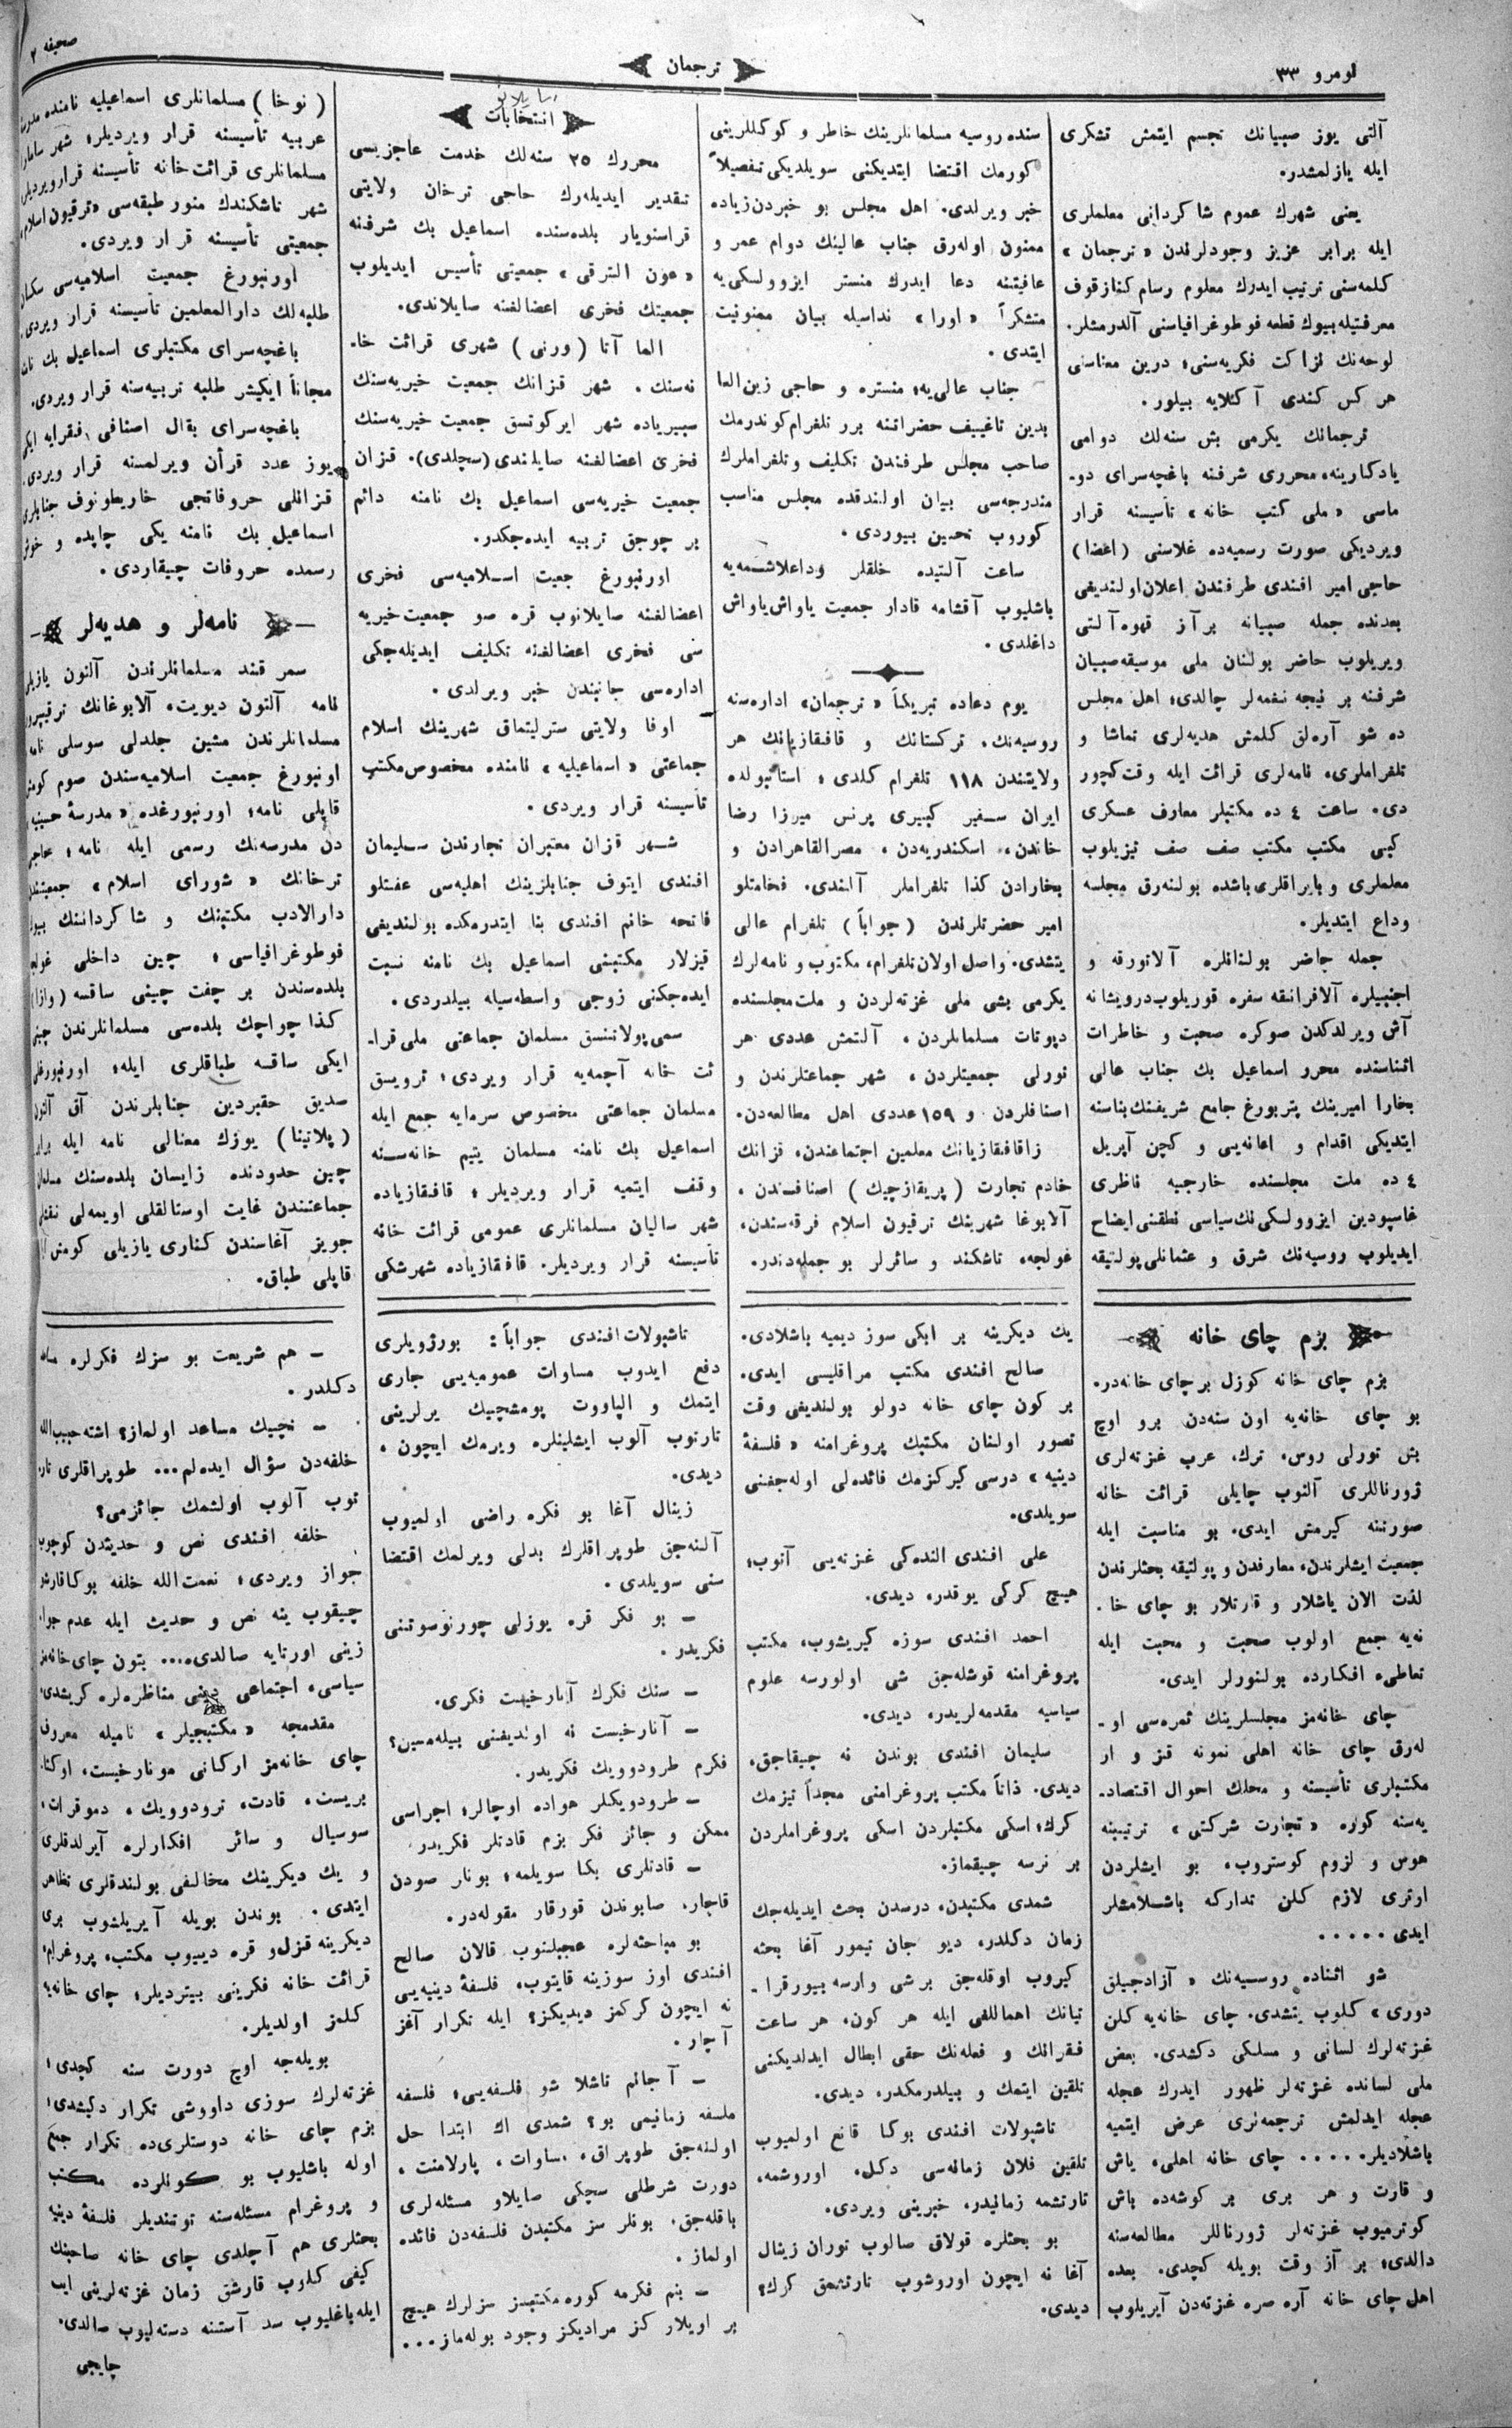 نومرو ٣٣
ترجمان
صحيفه ٢
آلتى يوز صبيانك تجسم ايتمش تشكرى
ايله يازلمشدر.
يعنى شهرك عموم شاكردانى معلملرى
ايله برابر عزيز وجودلرندن «ترجمان»
كلمه‌سنى ترتيب ايدرك معلوم رسام كنازقوف
معرفتيله بيوك قطعه فوطوغرافياسنى آلدرمشلر.
لوحه‌نك نزاكت فكريه‌سنى؛ درين معناسنى
هر كس كندى آكلايه بيلور.
ترجمانك يكرمى بش سنه‌لك دوامى
يادكارينه، محررى شرفنه باغچه‌سراى دو-
ماسى «ملى كتب خانه» تأسيسنه قرار
ويرديكى صورت رسميه‌ده غلاسنى (اعضا)
حاجى امير افندى طرفندن اعلان اولنديغى
بعدنده جمله صبيانه بر آز قهوه آلتى
ويريلوب حاضر بولنان ملى موسيقه صبيان
شرفنه بر نيجه نغمه‌لر چالدى؛ اهل مجلس
ده شو آره‌لق كلمش هديه‌لرى تماشا و
تلغراملرى، نامه‌لرى قرائت ايله وقت كچور
دى. ساعت ٤ ده مكتبلر معارف عسكرى
كبى مكتب مكتب صف صف تيزيلوب
معلملرى و بايراقلرى باشده بولنه‌رق مجلسه
وداع ايتديلر.
جمله حاضر بولنانلره آلاتورقه و
اجنبيلره آلافرانقه سفره قوريلوب درويشانه
آش ويرلدكدن صوكره صحبت و خاطرات
اثناسنده محرر اسماعيل بك جناب عالى
بخارا اميرينك پتربورغ جامع شريفنك بناسنه
ايتديكى اقدام و اعانه‌يى و كچن آپريل
٤ ده ملت مجلسنده خارجيه ناظرى
غاسپودين ايزوولسكى‌نك سياسى نطقنى ايضاح
ايديلوب روسيه‌نك شرق و عثمانلى پولتيقه
سنده روسيه مسلمانلرينك خاطر و كوكللرينى
كورمك اقتضا ايتديكنى سويلديكى تفصيلاً
خبر ويرلدى. اهل مجلس بو خبردن زياده
ممنون اوله‌رق جناب عالينك دوام عمر و
عافيتنه دعا ايدرك منستر ايزوولسكى‌يه
متشكراً «اورا» نداسيله بيان ممنونيت
ايتدى.
جناب عالى‌يه؛ منستره و حاجى زين العا
بدين تاغييف حضراتنه برر تلغرام كوندرمك
صاحب مجلس طرفندن تكليف و تلغراملرك
مندرجه‌سى بيان اولندقده مجلس مناسب
كوروب تحسين بيوردى.
ساعت آلتيده خلقلر وداعلاشمه‌يه
باشليوب آقشامه قادار جمعيت ياواش ياواش
داغلدى.
يوم دعاده تبريكاً «ترجمان» اداره‌سنه
روسيه‌نك، تركستانك و قافقازيانك هر
ولايتندن ١١٨ تلغرام كلدى؛ استانبولده
ايران سفير كبيرى پرنس ميرزا رضا
خاندن، اسكندريه‌دن، مصر القاهرادن و
بخارادن كذا تلغراملر آلندى. فخامتلو
امير حضرتلرندن (جواباً) تلغرام عالى
يتشدى. واصل اولان تلغرام، مكتوب و نامه‌لرك
يكرمى بشى ملى غزته‌لردن و ملت مجلسنده
دپوتات مسلمانلردن، آلتمش عددى هر
تورلى جمعيتلردن، شهر جماعتلرندن و
اصنافلردن و ١٥٩ عددى اهل مطالعه‌دن.
زاقافقازيانك معلمين اجتماعندن، قزانك
خادم تجارت (پريقازچيك) اصنافندن،
آلابوغا شهرينك ترقيون اسلام فرقه‌سندن،
غولجه، تاشكند و سائرلر بو جمله‌دندر.
انتخابات
محررك ٢٥ سنه‌لك خدمت عاجزيسى
تقدير ايديله‌رك حاجى ترخان ولايتى
قراسنويار بلده‌سنده اسماعيل بك شرفنه
«عون الترقى» جمعيتى تأسيس ايديلوب
جمعيتك فخرى اعضالغنه صايلاندى.
الما آتا (ورنى) شهرى قرائت خا-
نه‌سنك. شهر قزانك جمعيت خيريه‌سنك
سبيرياده شهر ايركوتسق جمعيت خيريه‌سنك
فخرى اعضالغنه صايلندى (سچلدى). قزان
جمعيت خيريه‌سى اسماعيل بك نامنه دائم
بر چوجق تربيه ايده‌جكدر.
اورنبورغ جمعيت اسلاميه‌سى فخرى
اعضالغنه صايلانوب قره صو جمعيت خيريه
سى فخرى اعضالغنه تكليف ايديله‌جكى
اداره‌سى جانبندن خبر ويرلدى.
اوفا ولايتى سترليتماق شهرينك اسلام
جماعتى «اسماعيليه» نامنده مخصوص مكتب
تأسيسنه قرار ويردى.
شهر قزان معتبران تجارندن سليمان
افندى ايتوف جنابلرينك اهليه‌سى عفتلو
فاتحه خانم افندى بنا ايتدرمكده بولنديغى
قيزلار مكتبنى اسماعيل بك نامنه نسبت
ايده‌جكنى زوجى واسطه‌سيله بيلدردى.
سمى‌پولاتنسق مسلمان جماعتى ملى قرا-
ئت خانه آچمه‌يه قرار ويردى؛ ترويسق
مسلمان جماعتى مخصوص سرمايه جمع ايله
اسماعيل بك نامنه مسلمان يتيم خانه‌سنه
وقف ايتميه قرار ويرديلر؛ قافقازياده
شهر ساليان مسلمانلرى عمومى قرائت خانه
تأسيسنه قرار ويرديلر. قافقازياده شهر شكى
(نوخا) مسلمانلرى اسماعيليه نامنده
عربيه تأسيسنه قرار ويرديلر؛ شهر
مسلمانلرى قرائت خانه تأسيسنه قرار ويرديلر
شهر تاشكندك منور طبقه‌سى «ترقيون اسلام»
جمعيتى تأسيسنه قرار ويردى.
اورنبورغ جمعيت اسلاميه‌سى
طلبه‌لك دارالمعلمين تأسيسنه قرار ويردى.
باغچه‌سراى مكتبلرى اسماعيل بك
مجاناً ايكيشر طلبه تربيه‌سنه قرار ويردى.
باغچه‌سراى بقال اصنافى فقرايه ايكى
يوز عدد قرأن ويرلمسنه قرار ويردى.
قزانلى حروفاتجى خاريطونوف جنابلرى
اسماعيل بك نامنه يكى چاپده و خوش
رسمده حروفات چيقاردى.
نامه‌لر و هديه‌لر
سمرقند مسلمانلرندن آلتون يازيلى
نامه آلتون ديويت، آلابوغانك
مسلمانلرندن مشين جلدلى سوسلى نامه
اورنبورغ جمعيت اسلاميه‌سندن صوم كومش
قاپلى نامه؛ اورنبورغده «مدرسهٔ
دن مدرسه‌نك رسمى ايله نامه؛ حاجى
ترخانك «شوراى اسلام»
دارالادب مكتبنك و شاكردانتك بيوك
فوطوغرافياسى؛ چين داخلى غولجه
بلده‌سندن بر چفت چينى ساقسه (وازا)
كذا چواچك بلده‌سى مسلمانلرندن چينى
ايكى ساقسه طباقلرى ايله؛ اورنبورغلى
صديق حقيردين جنابلرندن آق آلتون
(پلاتينا) يوزك معنالى نامه ايله
چين حدودنده زايسان بلده‌سنك مسلمان
جماعتندن غايت اوستالقلى اويمه‌لى نقشلى
جويز آغاسندن كنارى يازيلى كومش
قاپلى طباق.
بزم چاى خانه
بزم چاى خانه كوزل بر چاى خانه‌در.
بو چاى خانه‌يه اون سنه‌دن برو اوچ
بش تورلى روس، ترك، عرب غزته‌لرى
ژورناللرى آلنوب چايلى قرائت خانه
صورتنه كيرمش ايدى. بو مناسبت ايله
جمعيت ايشلرندن، معارفدن و پولتيقه بحثلرندن
لذت الان ياشلار و قارتلار بو چاى خا-
نه‌يه جمع اولوب صحبت و محبت ايله
تعاطىء افكارده بولنورلر ايدى.
چاى خانه‌مز مجلسلرينك ثمره‌سى او-
له‌رق چاى خانه اهلى نمونه قز و ار
مكتبلرى تأسيسنه و محلك احوال اقتصاد-
يه‌سنه كوره «تجارت شركتى» ترتيبنه
هوس و لزوم كوستروب، بو ايشلردن
اوترى لازم كلن تداركه باشلامشلر
ايدى.....
شو اثناده روسيه‌نك «آزادجيلق
دورى» كلوب يتشدى. چاى خانه‌يه كلن
غزته‌لرك لسانى و مسلكى دكشدى. بعض
ملى لسانده غزته‌لر ظهور ايدرك عجله
عجله ايدلمش ترجمه‌لرى عرض ايتميه
باشلاديلر..... چاى خانه اهلى، ياش
و قارت و هر برى بر كوشه‌ده باش
كوترميوب غزته‌لر ژورناللر مطالعه‌سنه
دالدى؛ بر آز وقت بويله كچدى. بعده
اهل چاى خانه آره صره غزته‌دن آيريلوب
يك ديكرينه بر ايكى سوز ديميه باشلادى.
صالح افندى مكتب مراقليسى ايدى.
بر كون چاى خانه دولو بولنديغى وقت
تصور اولنان مكتبك پروغرامنه «فلسفهٔ
دينيه» درسى كيركزمك فائده‌لى اوله‌جغنى
سويلدى.
على افندى النده‌كى غزته‌يى آتوب؛
هيچ كركى يوقدر، ديدى.
احمد افندى سوزه كيريشوب، مكتب
پروغرامنه قوشله‌جق شى اولورسه علوم
سياسيه مقدمه‌لريدر، ديدى.
سليمان افندى بوندن نه چيقاجق،
ديدى. ذاتاً مكتب پروغرامنى مجدداً تيزمك
كرك؛ اسكى مكتبلردن اسكى پروغراملردن
بر نرسه چيقماز.
شمدى مكتبدن، درسدن بحث ايديله‌جك
زمان دكلدر، ديو جان تيمور آغا بحثه
كيروب اوقله‌جق برشى وارسه بيورقرا-
تيانك اهماللغى ايله هر كون، هر ساعت
فقرانك و فعله‌نك حقى ابطال ايدلديكنى
تلقين ايتمك و بيلدرمكدر، ديدى.
تاشپولات افندى بوكا قانع اولميوب
تلقين فلان زمانه‌سى دكل، اوروشمه،
تارتشمه زمانيدر، خبرينى ويردى.
بو بحثلره قولاق صالوب توران زينال
آغا نه ايچون اوروشوب تارتشمق كرك؟
ديدى.
تاشپولات افندى جواباً: بورژويلرى
دفع ايدوب مساوات عموميه‌يى جارى
ايتمك و الپاووت پومشچيك يرلرينى
تارتوب آلوب ايشلينلره ويرمك ايچون،
ديدى.
زينال آغا بو فكره راضى اولميوب
آلنه‌جق طوپراقلرك بدلى ويرلمك اقتضا
سنى سويلدى.
ـ بو فكر قره يوزلى چورنوسوتنى
فكريدر.
ـ سنك فكرك آنارخيست فكرى.
ـ آنارخيست نه اولديغنى بيله‌مسين؟
فكرم طرودوويك فكريدر.
ـ طرودويكلر هواده اوچالر؛ اجراسى
ممكن و جائز فكر بزم قادتلر فكريدر
ـ قادتلرى بكا سويلمه؛ بونار صودن
قاچار، صابوندن قورقار مقوله‌در.
بو مباحثه‌لره عجبلنوب قالان صالح
افندى اوز سوزينه قايتوب، فلسفهٔ دينيه‌يى
نه ايچون كركمز ديديكز؟ ايله تكرار آغز
آچار.
ـ آ جانم تاشلا شو فلسفه‌يى؛ فلسفه
ملسفه زمانيمى بو؟ شمدى اك ابتدا حل
اولنه‌جق طوپراق، مساوات، پارلامنت،
دورت شرطلى سچكى صايلاو مسئله‌لرى
باقله‌جق. بونلر سز مكتبدن فلسفه‌دن فائده
اولماز.
ـ بنم فكرمه كوره مكتبسز سزلرك هيچ
بر اويلار كز مراديكز وجود بوله‌ماز...
ـ هم شريعت بو سزك فكرلره
دكلدر.
ـ نچيك مساعد اولماز؟ اشته حبيب الله
خلفه‌دن سؤال ايده‌لم... طوپراقلرى تار
توب آلوب اولشمك جائزمى؟
خلفه افندى نص و حديثدن كوچوب
جواز ويردى؛ نعمت الله خلفه بوكا قارشو
چيقوب ينه نص و حديث ايله عدم جوا-
زينى اورتايه صالدى.... بتون چاى خانه‌مز
سياسى، اجتماعى دينى مناظره‌لره كريشدى.
مقدمجه «مكتبجيلر» ناميله معروف
چاى خانه‌مز اركانى مونارخيست، اوكتا-
بريست، قادت، ترودوويك، دموقرات،
سوسيال و سائر افكارلره آيرلدقلرى
و يك ديكرينك مخالفى بولندقلرى تظاهر
ايتدى. بوندن بويله آيريلشوب برى
ديكرينه قزل و قره دييوب مكتب، پروغرام،
قرائت خانه فكرينى بيتيرديلر؛ چاى خانه‌يه
كلمز اولديلر.
بويله‌جه اوچ دورت سنه كچدى؛
غزته‌لرك سوزى داووشى تكرار دكيشدى؛
بزم چاى خانه دوستلرى‌ده تكرار جمع
اوله باشليوب بو كونلرده مكتب
و پروغرام مسئله‌سنه توتنديلر فلسفهٔ دينيه
بحثلرى هم آچلدى چاى خانه صاحبنك
كيفى كلوب قارشق زمان غزته‌لرينى ايپ
ايله باغليوب سد آستنه دسته‌ليوب صالدى.
چايجى